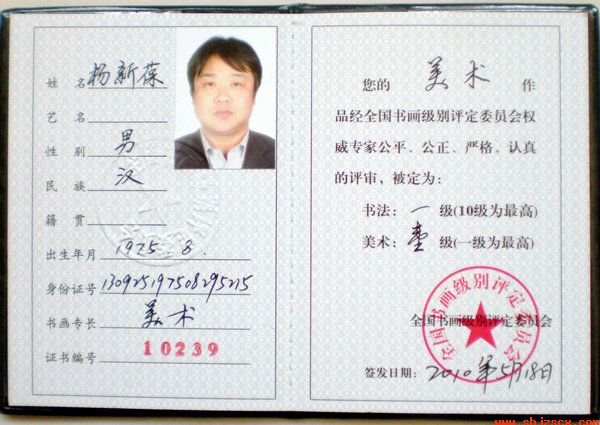 姓 名 杨新葆
艺 名
性 别 男
民 族 汉
籍 贯
出生年月 1975.8.
身份证号 130925197508295215
书画专长 美术
证书编号 10239
您的 美术 作
品经全国书画级别评定委员会权
威专家公平、公正、严格、认真
的评审，被定为：
书法：一 级(10级为最高)
美术：壹 级(一级为最高)
全国书画级别评定委员会
全国书画级别评定委员会
签发日期：2010年5月18日
www.shjzscx.com